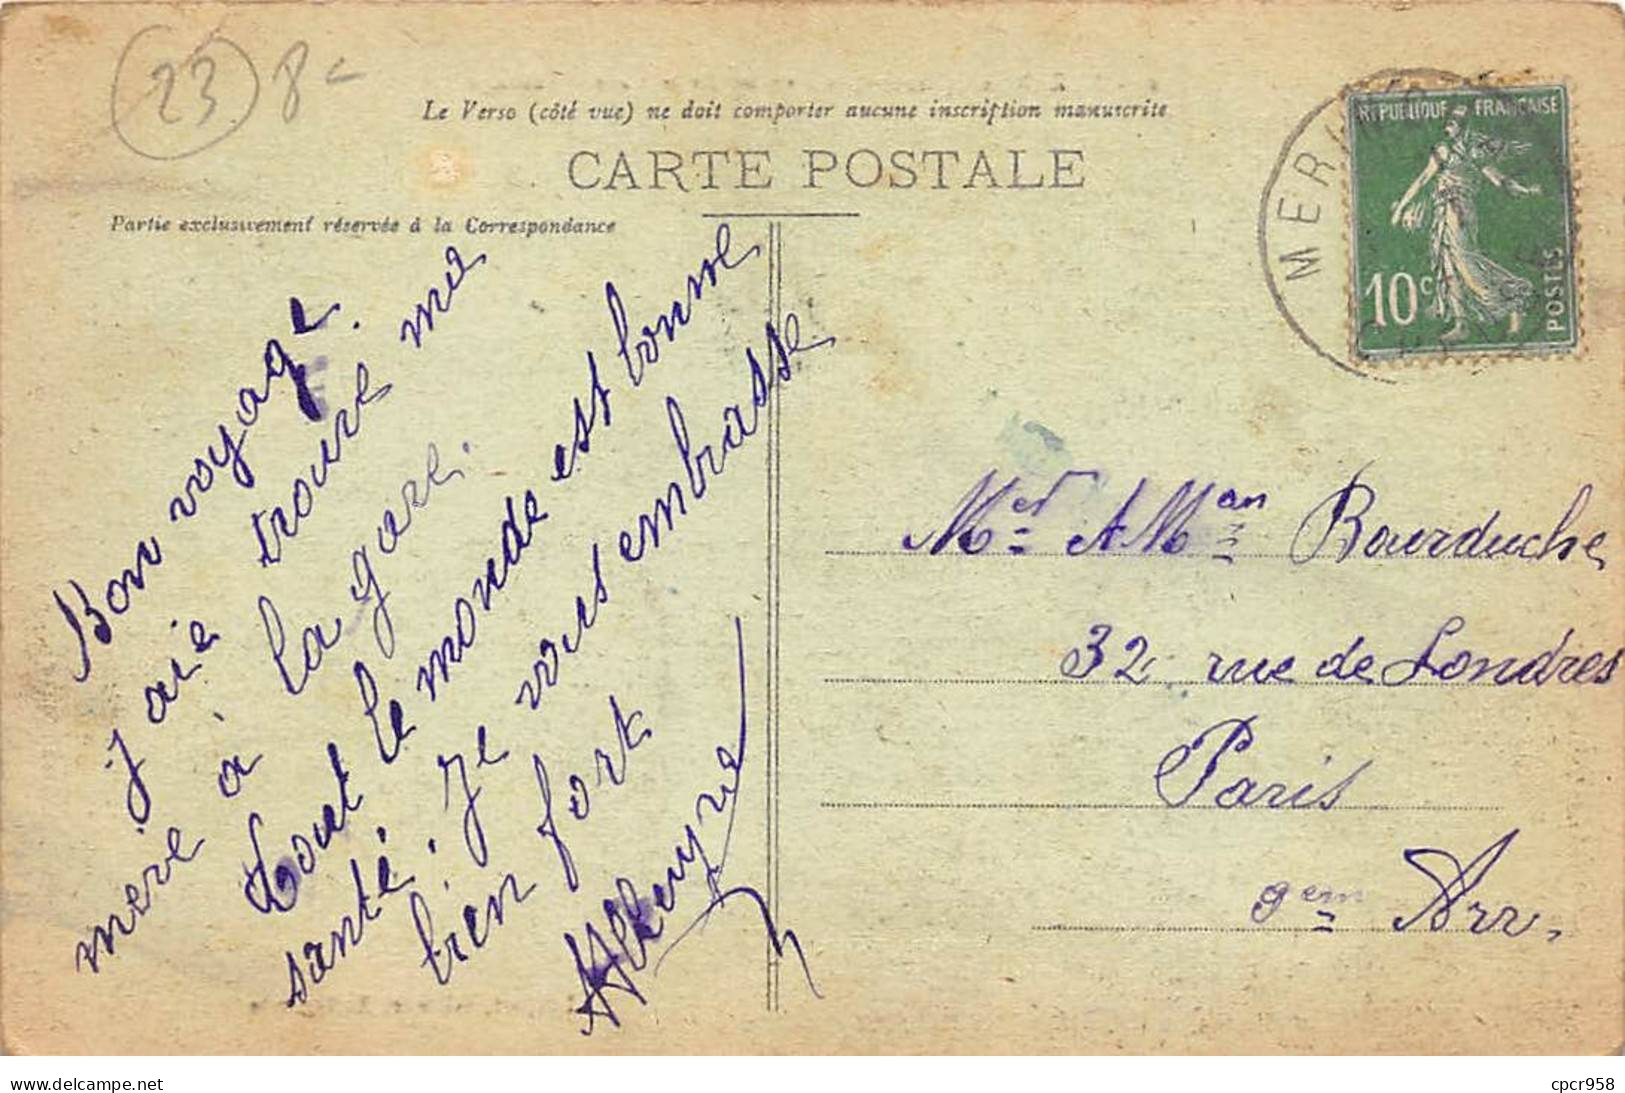 23 8-
Le Verso (côté vue) ne doit comporter aucune inscription manuscrite
CARTE POSTALE
Partie exclusivement réservée à la Correspondance
Bon voyage.
j'aie trouvé me
mere à la gare.
Tout le monde est bonne
santé. Je vous embrasse
bien fort
RÉPUBLIQUE FRANÇAISE
10c
POSTES
MER
Mr et A Man Bourduche
32 rue de Londres
Paris
9em Arr.
www.delcampe.net
cpcr958